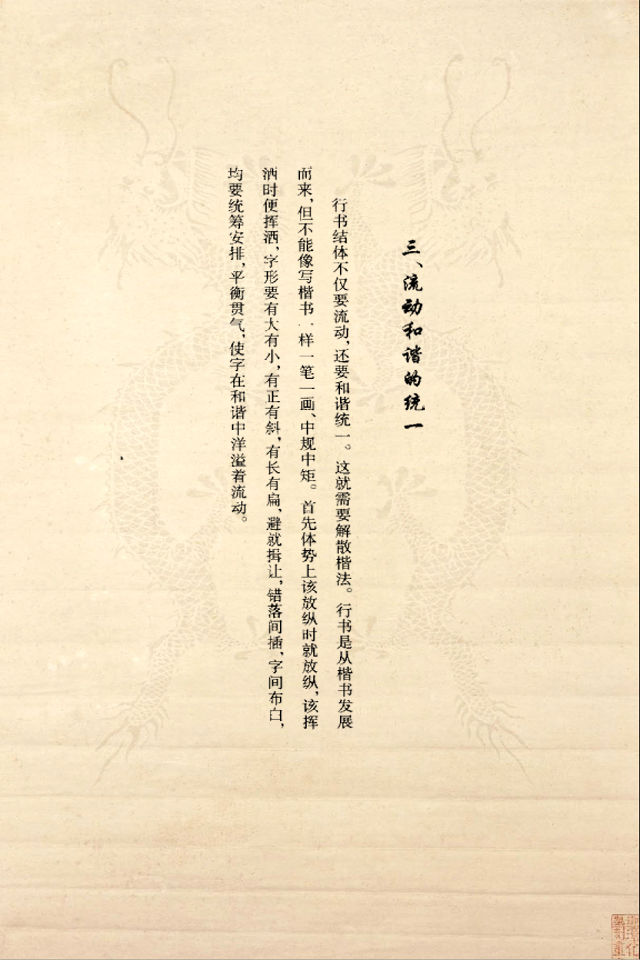 三、流动和谐的统一
行书结体不仅要流动，还要和谐统一。这就需要解散楷法。行书是从楷书发展
而来，但不能像写楷书一样一笔一画、中规中矩。首先体势上该放纵时就放纵，该挥
洒时便挥洒，字形要有大有小，有正有斜，有长有扁，避就揖让，错落间插，字间布白，
均要统筹安排，平衡贯气，使字在和谐中洋溢着流动。